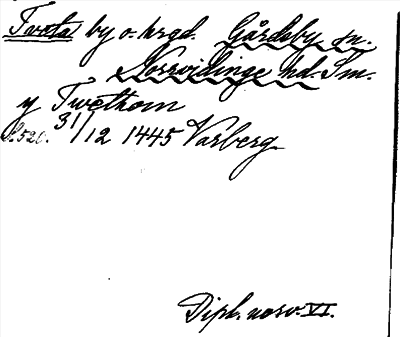 Tveta by o. hrgd. Gårdsby sn.
Norrvidinge hd. Sm.
y Twethom
S. 520. 31/12 1445 Varberg
Dipl. norv. VI.